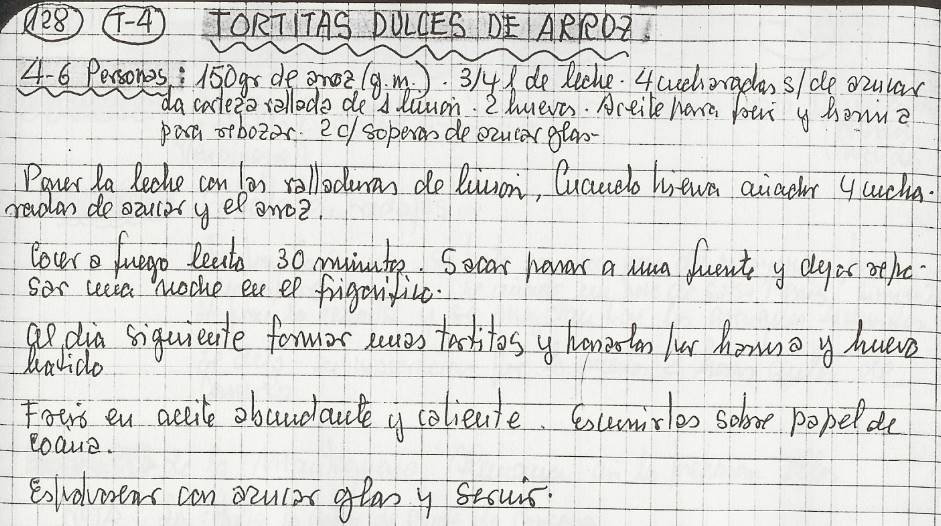 128 T-4 TORTITAS DULCES DE ARROZ.
4-6 Personas: 150gr de arroz (g.m.). 3/4 l de leche. 4 cucharadas s/ de azucar
da corteza rallada de 1 limon. 2 huevos. Aceite para freir y harina
para rebozar. 2 c/ soperas de azucar glas-
Poner la leche con las ralladuras de limon, Cuando hierva añadir 4 cucha-
radas de azucar y el arroz.
Cocer a fuego lento 30 minutos. Sacar pasar a una fuente y dejar repo-
sar una noche en el frigorifico.
Al dia siguiente formar unas tortitas y pasarlas por harina y huevo
batido
Freir en aceite abundante y caliente. Escurrirlas sobre papel de
cocina.
Espolvorear con azucar glas y servir.